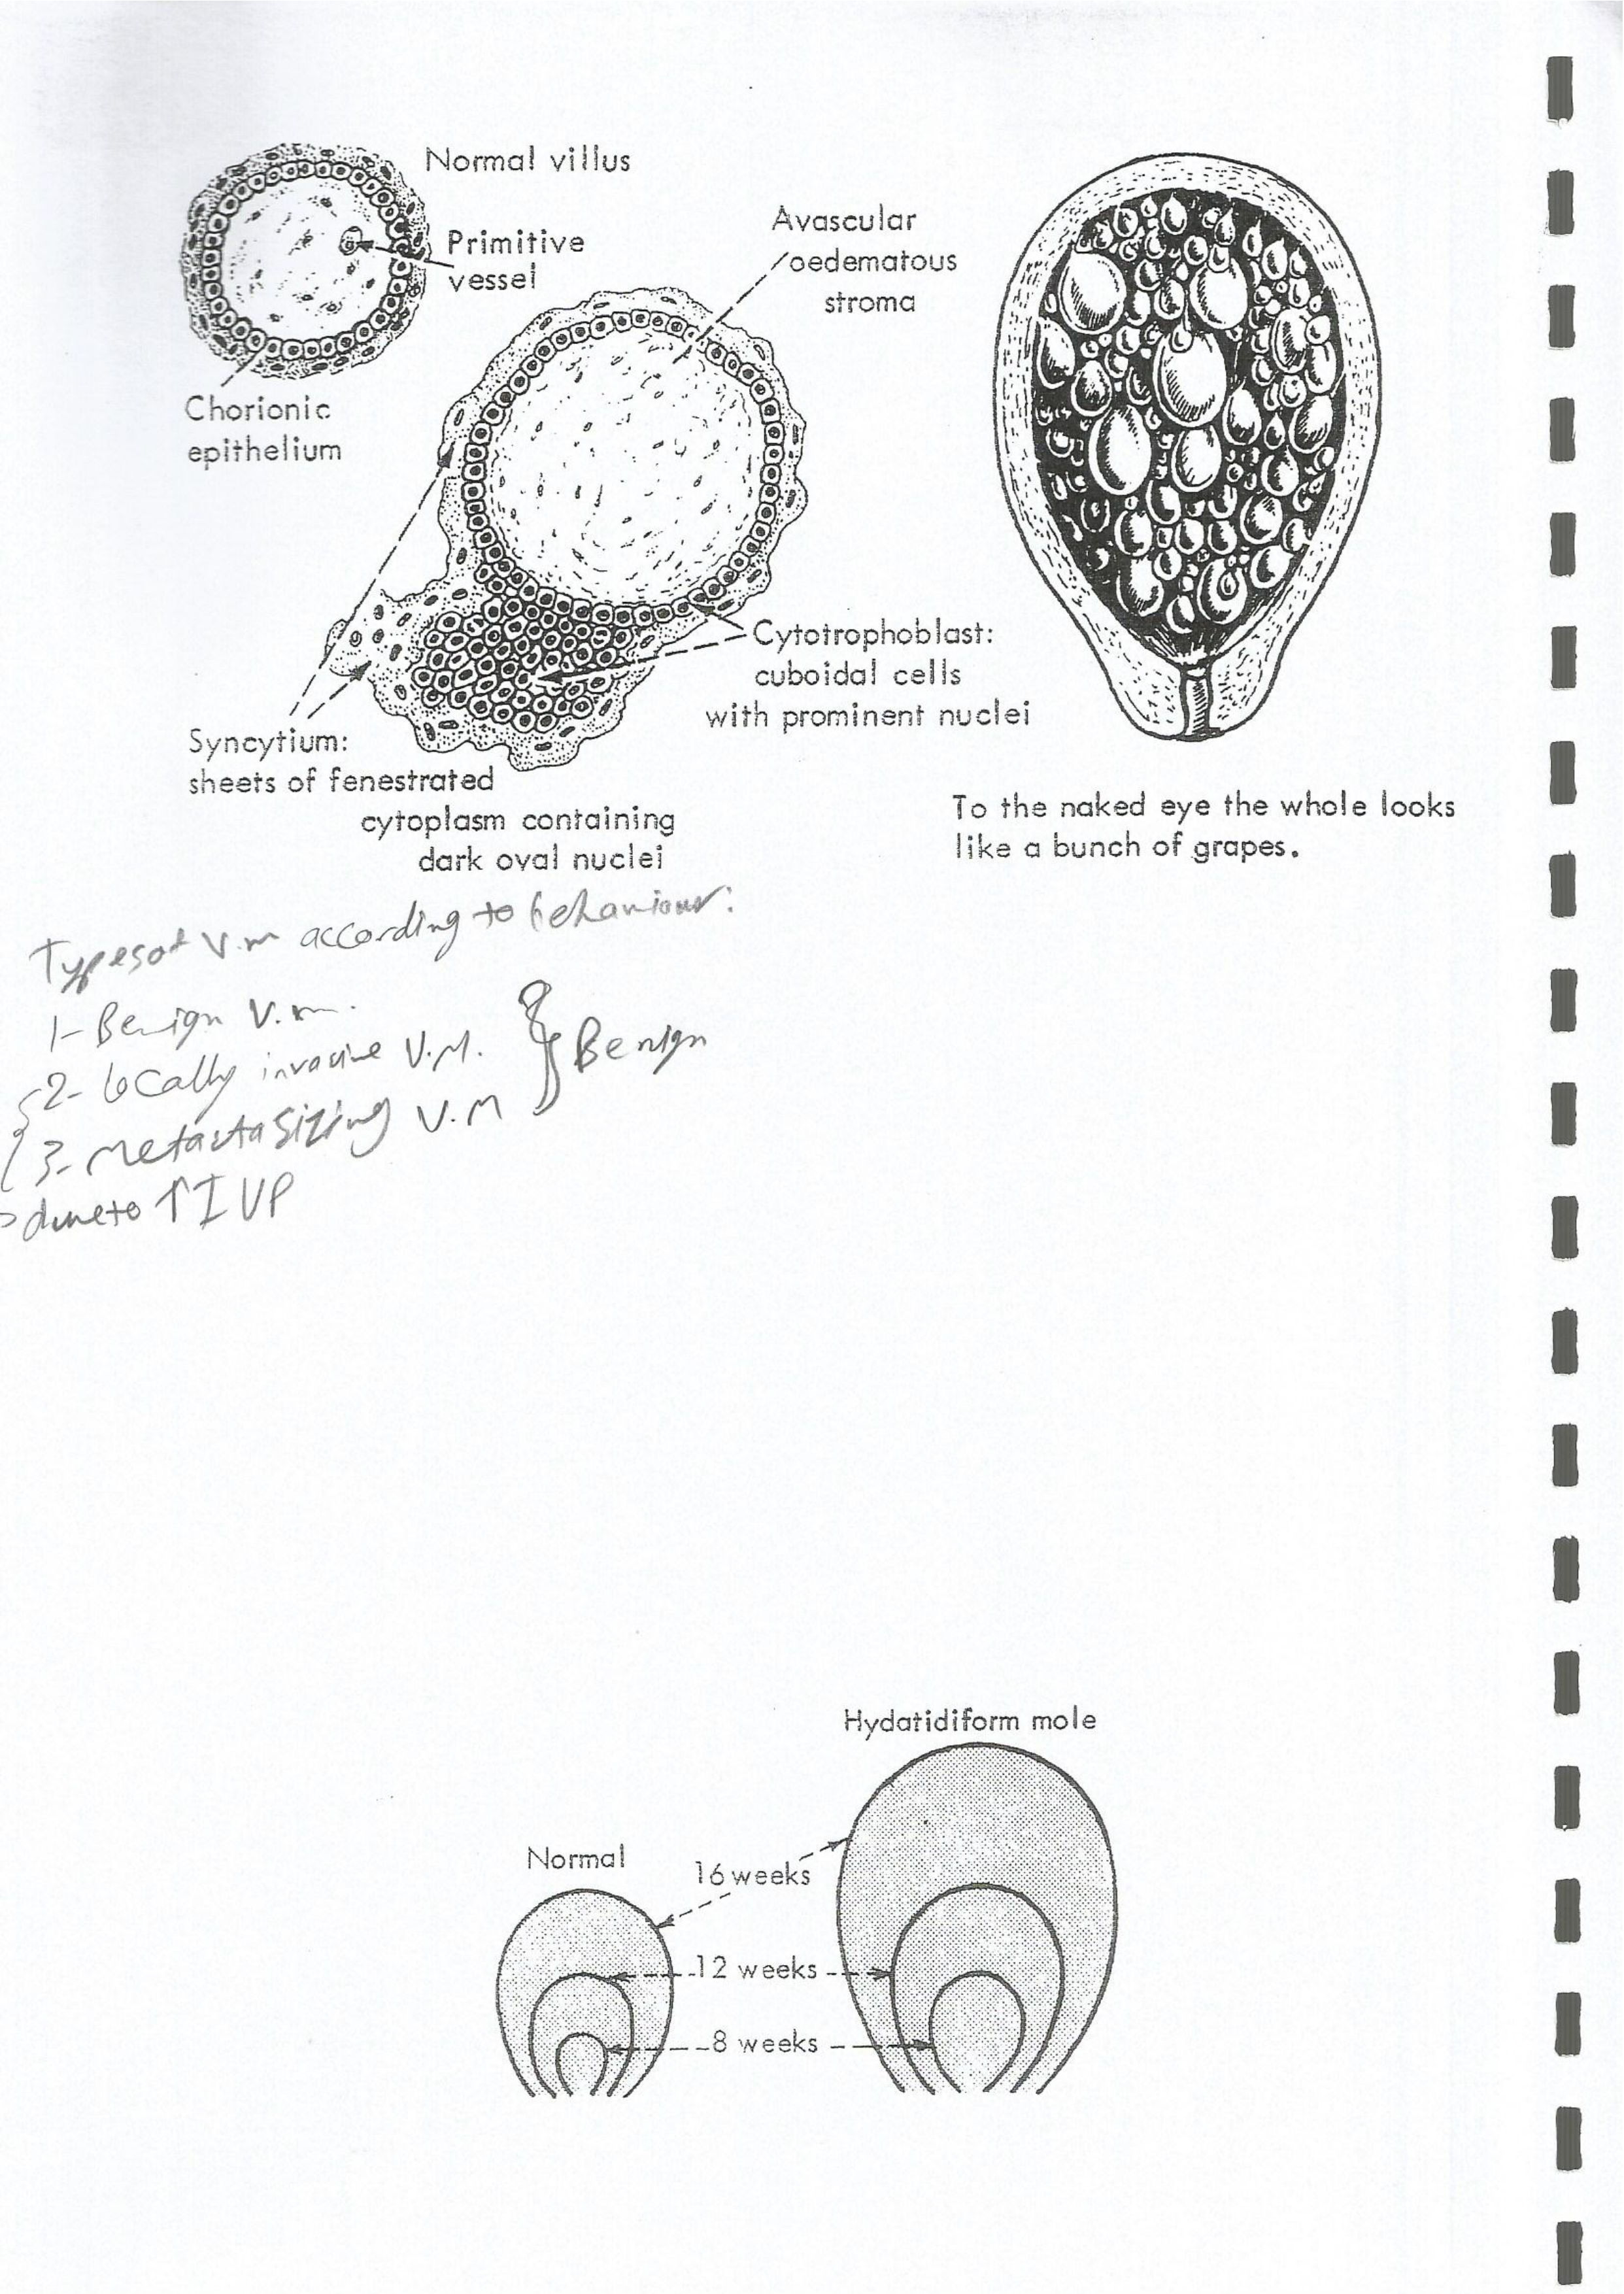 Normal villus
Primitive
vessel
Avascular
oedematous
stroma
Chorionic
epithelium
Cytotrophoblast:
cuboidal cells
with prominent nuclei
Syncytium:
sheets of fenestrated
cytoplasm containing
dark oval nuclei
To the naked eye the whole looks
like a bunch of grapes.
Types of V.m according to behaviour:
1- Benign V.m.
2- locally invasive V.M.
3- Metastasizing V.M
Benign
due to ↑ I VP
Hydatidiform mole
Normal
16 weeks
12 weeks
8 weeks